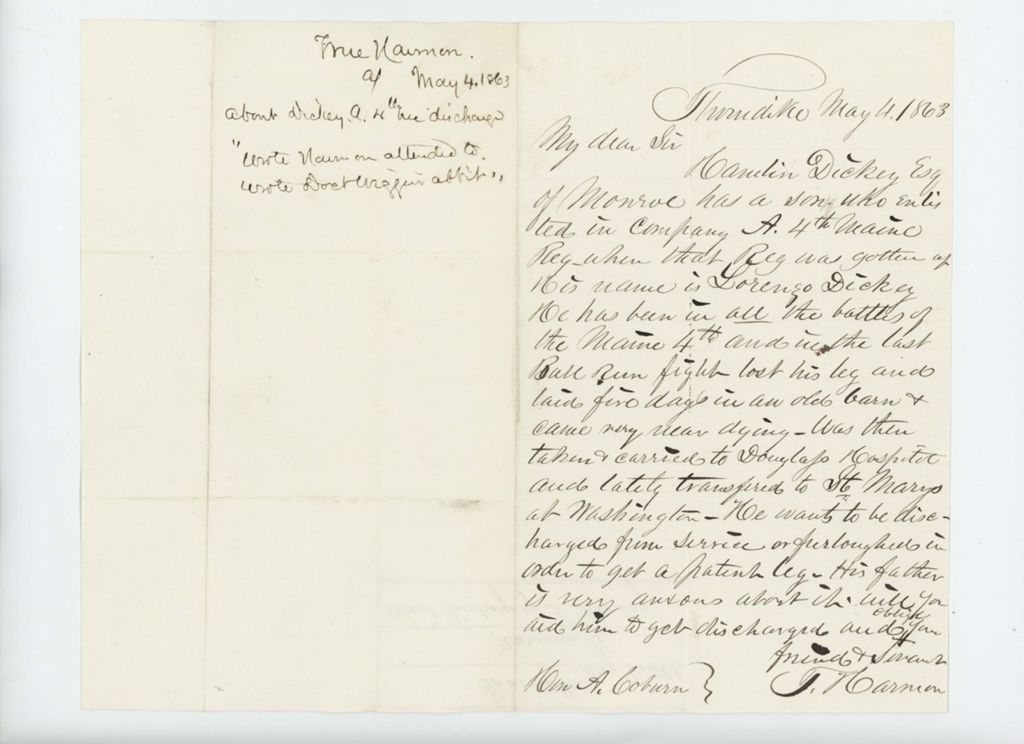 True Harmon.
of May 4. 1863
about Dickey. A. 4th Me discharge
"Wrote Harmon attended to.
wrote Doct Wiggin abt it"
Thorndike May 4. 1863
My dear Sir
Hamlin Dickey Esq
of Monroe has a son who enlis
ted in Company A. 4th Maine
Reg when that Reg was gotten up
His name is Lorenzo Dickey
He has been in all the battles of
the Maine 4th and in the last
Bull Run fight lost his leg and
laid five days in an old barn &
came very near dying - Was then
taken & carried to Douglass Hospital
and lately transfered to St Marys
at Washington - He wants to be disc-
harged from service or furloughed in
order to get a patent leg - His father
is very anxous about it. will you
aid him to get discharged and oblige your
friend & Servant
T. Harmon
Hon A. Coburn }